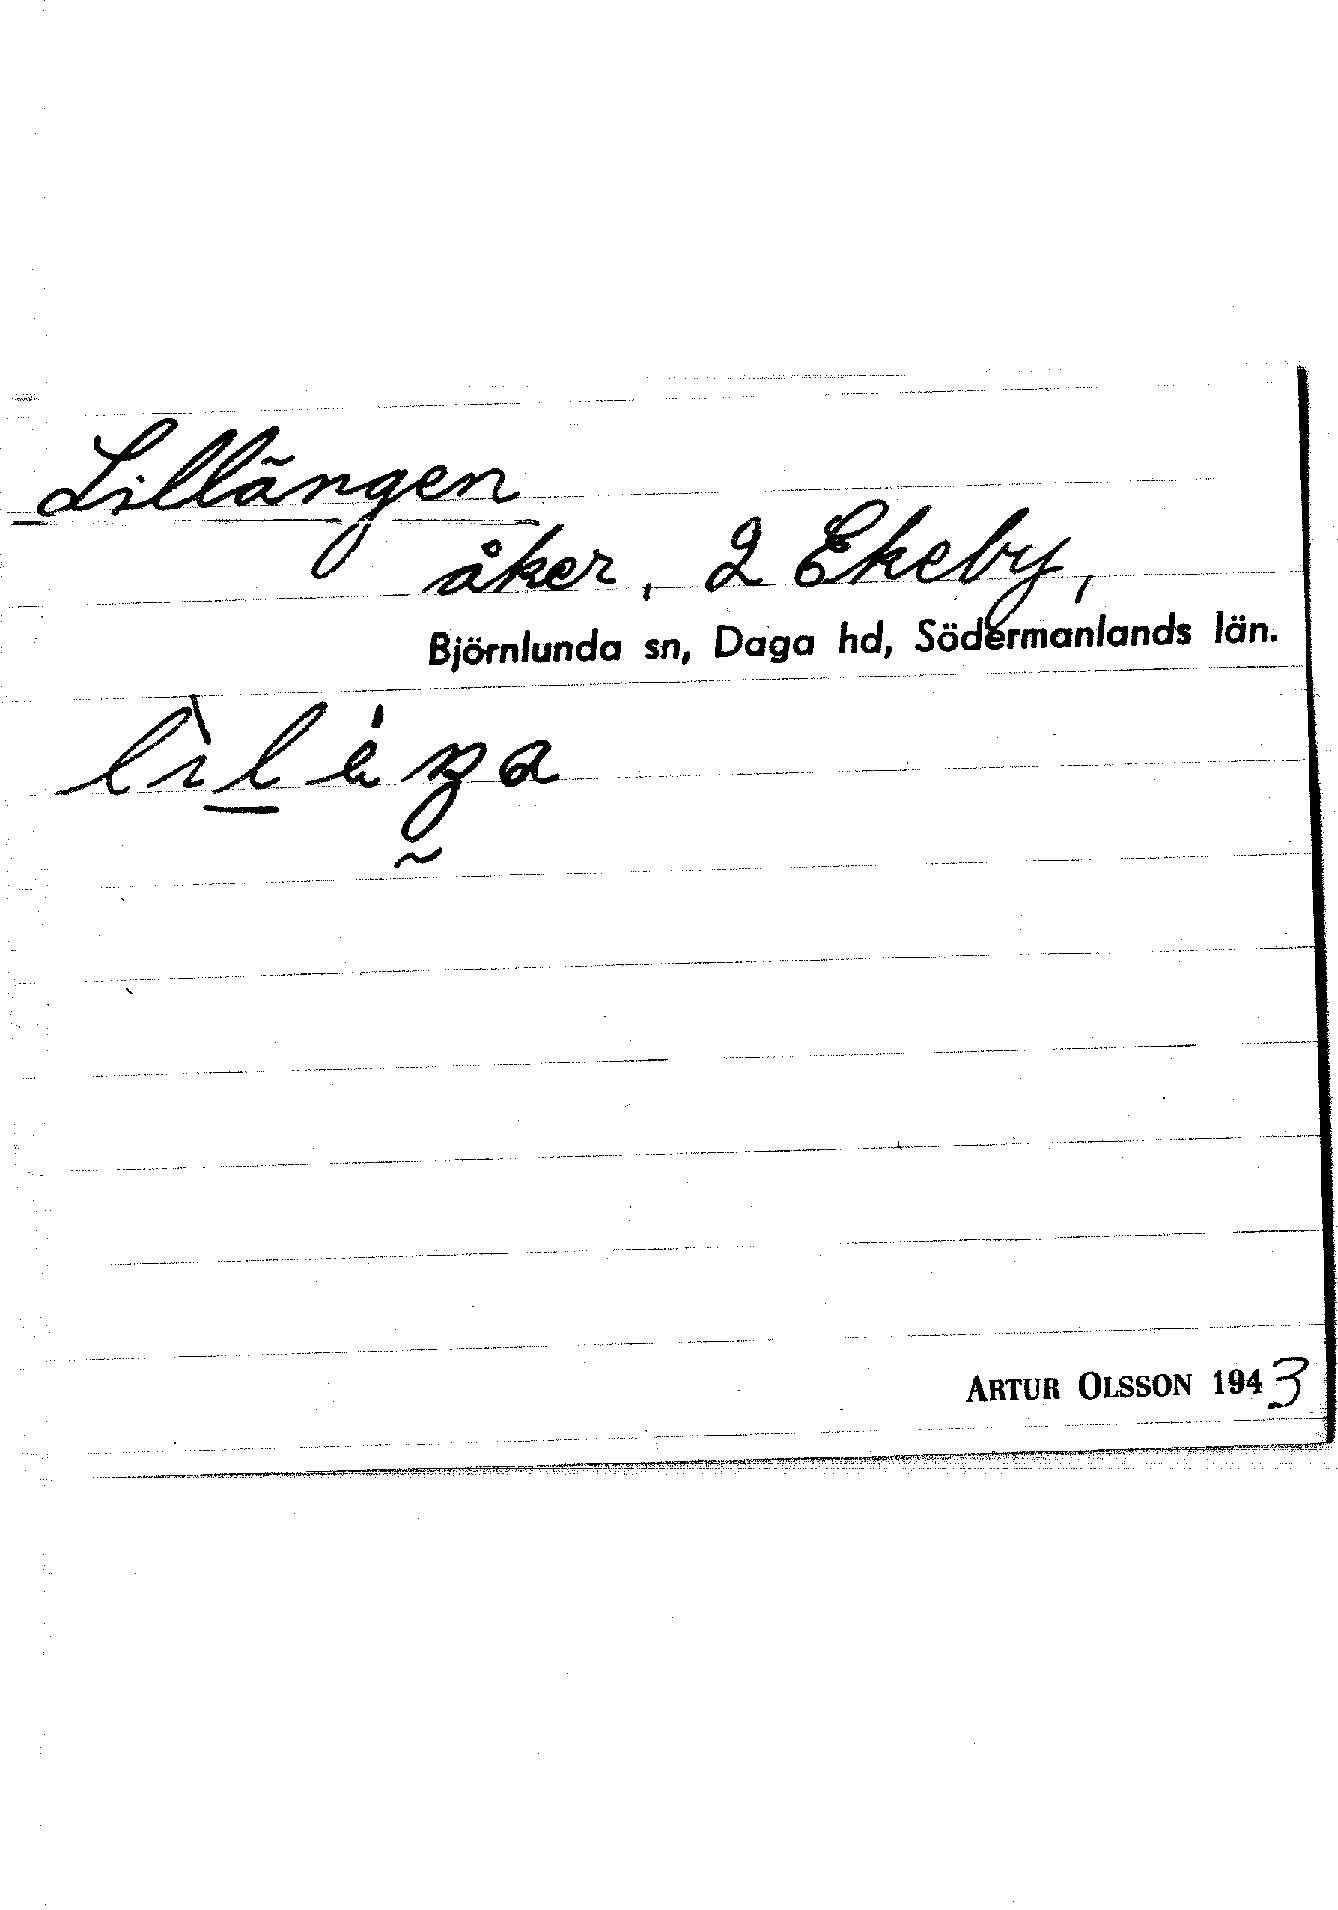 Lillängen
åker, 2 Ekeby,
Björnlunda sn, Daga hd, Södermanlands län.
ARTUR OLSSON 1943